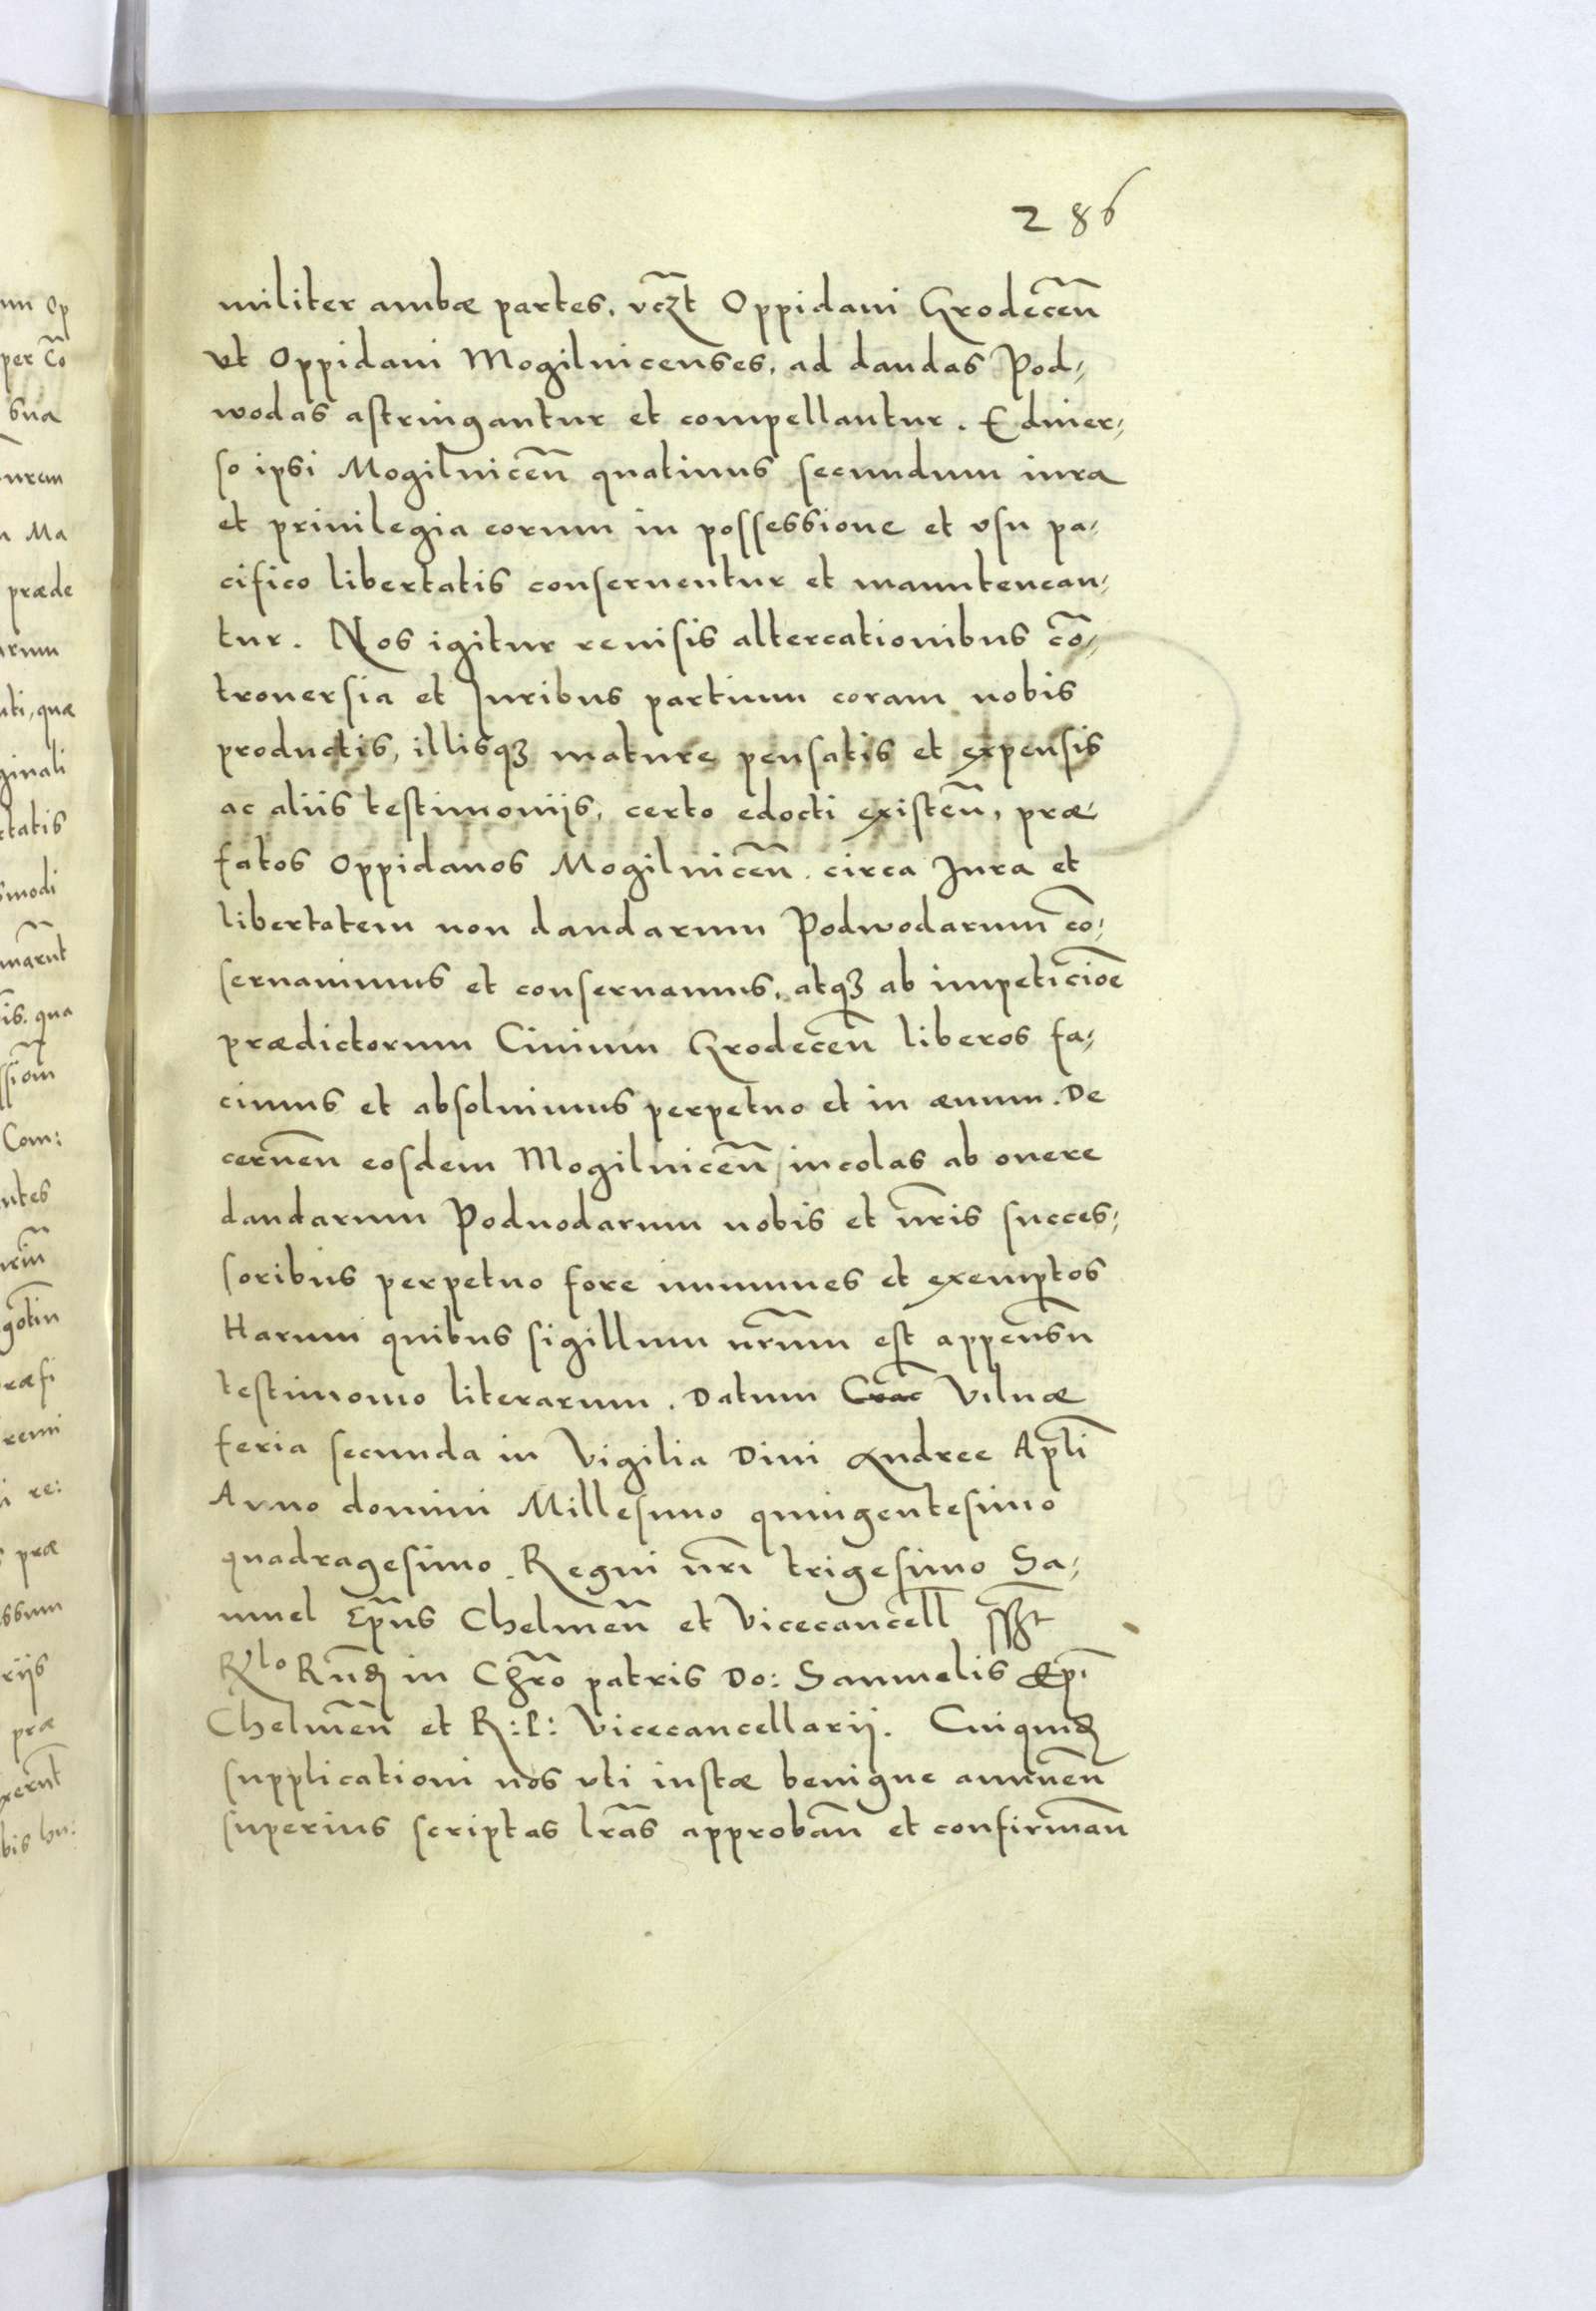 286
militer ambæ partes, vcz̃t Oppidani Grodecen̄
vt Oppidani Mogilnicenses, ad dandas Pod⸗
wodas astringantur et compellantur. E diuer⸗
so ipsi Mogilnicen̄ quatinus secundum iura
et priuilegia eorum in possessione et vsu pa⸗
cifico libertatis conseruentur et manutenean⸗
tur. Nos igitur reuisis altercationibus cō⸗
trouersia et Juribus partium coram nobis
productis, illisqꝫ mature pensatis et expensis
ac aliis testimoniis, certo edocti existen̄, præ⸗
fatos Oppidanos Mogilnicen̄ circa Jura et
libertatem non dandarum Podwodarum cō⸗
seruauimus et conseruamus, atqꝫ ab impeticiōe
prædictorum Ciuium Grodecen̄ liberos fa⸗
cimus et absoluimus perpetuo et in æuum. De
cernen̄ eosdem Mogilnicen̄ incolas ab onere
dandarum Poduodarum nobis et nr̄is succes⸗
soribus perpetuo fore immunes et exemptos
Harum quibus sigillum nr̄um est appensū
testimonio literarum. Datum Crac̄ Vilnæ
feria secunda in Vigilia Diui Andree Apl̄i
Anno domini Millesimo quingentesimo
quadragesimo. Regni nr̄i trigesimo Sa⸗
muel Ep̄us Chelmen̄ et Vicecancell̄ sszt
Rlo Rn̄d in Chr̄o patris Do: Samuelis Ep̄i
Chelmen̄ et R:P: Vicecancellarij. Cuiquid
supplicationi nos vti iustæ benigne annuen̄
superius scriptas lr̄as approban̄ et confirman̄
1540
um Op
per Cō
sua
n Ma
præde
arum
nti, quæ
ginali
rtatis
smodi
is. qua
Com:
ntes
ræfi
i re:
s præ
ssum
riis
præ
bis hu: